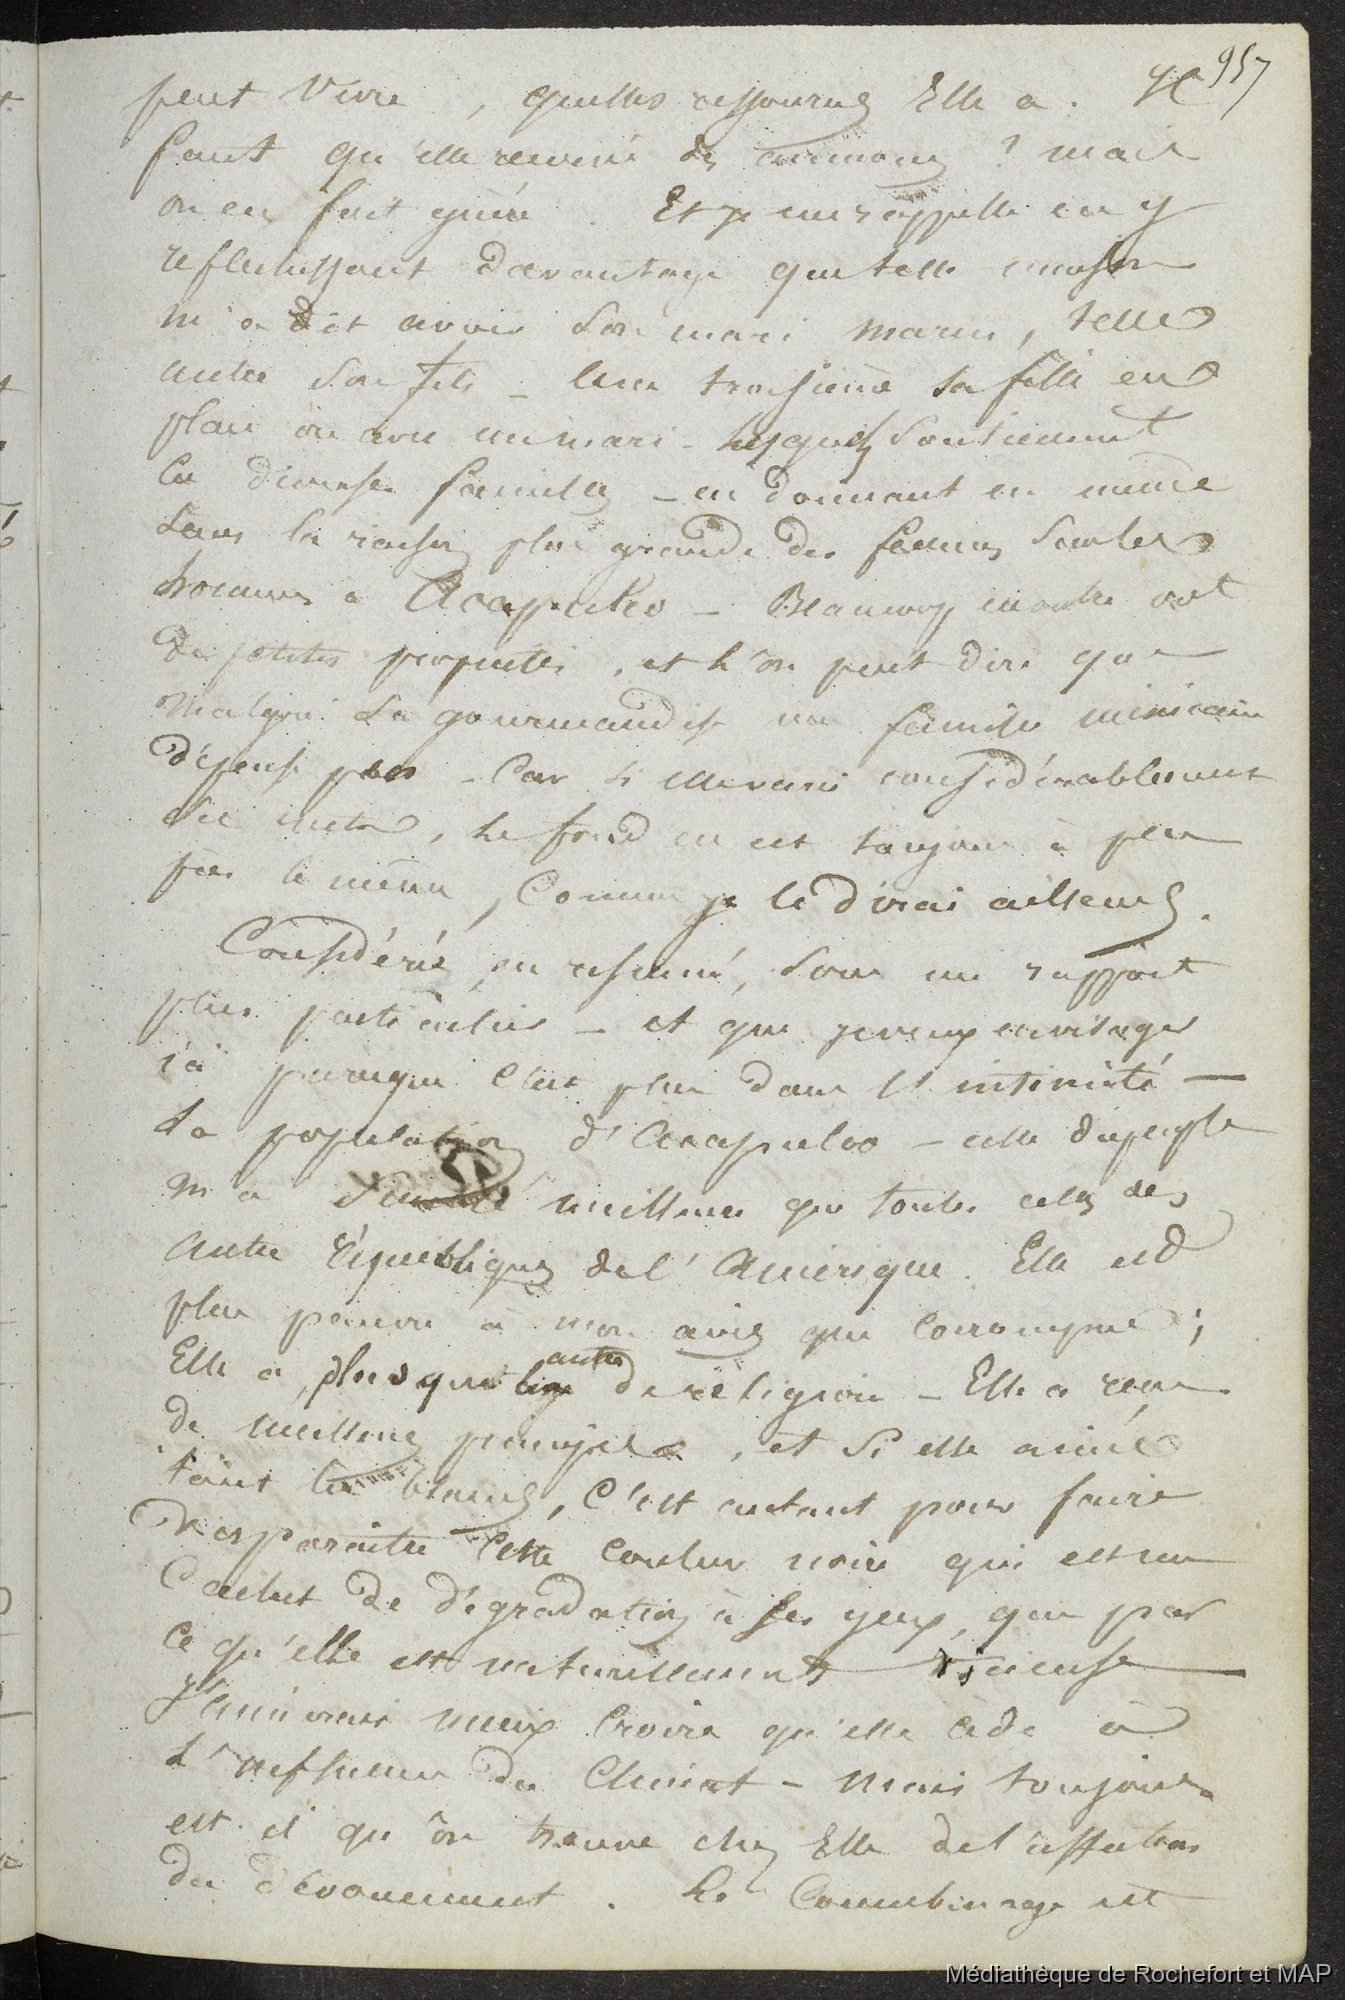 957
peut vivre, quelles ressources Elle a. Il
faut qu'elle recoive des aumones ? mais
on en fait guère. Et je me rappelle en y
reflechissant davantage que telle maison
m'a dit avoir son mari marin, telle
autre son fils _ une troisieme sa fille en
place ou avec un mari _ lesquels soutiennent
ces diverses familles _ en donnant en même
tems la raison plus grande des femmes sur les
hommes à Acapulco _ Beaucoup en outre ont
de petites propriétés, et l'on peut dire que
malgré sa gourmandise une famille mexicaine
dépense peu _ Car si elle varie considérablement
ses mets, le fond en est toujours à peu
près le même, Comme je le dirai ailleurs.
Considérée, en résumé, sous un rapport
plus particulier _ et que je veux envisager
ici parceque c'est plus dans l'intimité _
La population d'Acapulco _ celle du peuple
m'a semblé meilleure que toutes celles des
autres républiques de l'Amérique. Elle est
plus pauvre à mon avis que corrompue ;
Elle a plus que les autres de religion _ Elle a reçu
de meilleurs principes, et si elle aime
tant les blancs, C'est autant pour faire
disparaitre Cette Couleur noire qui est un
Cachet de dégradation à ses yeux, que par
ce qu'elle est naturellement vicieuse _
J'aimerais mieux Croire qu'elle cède à
L'influence du Climat _ mais toujours
est-il qu'on trouve chez Elle de l'affection
du dévouement. Le Concubinage est
Médiathèque de Rochefort et MAP